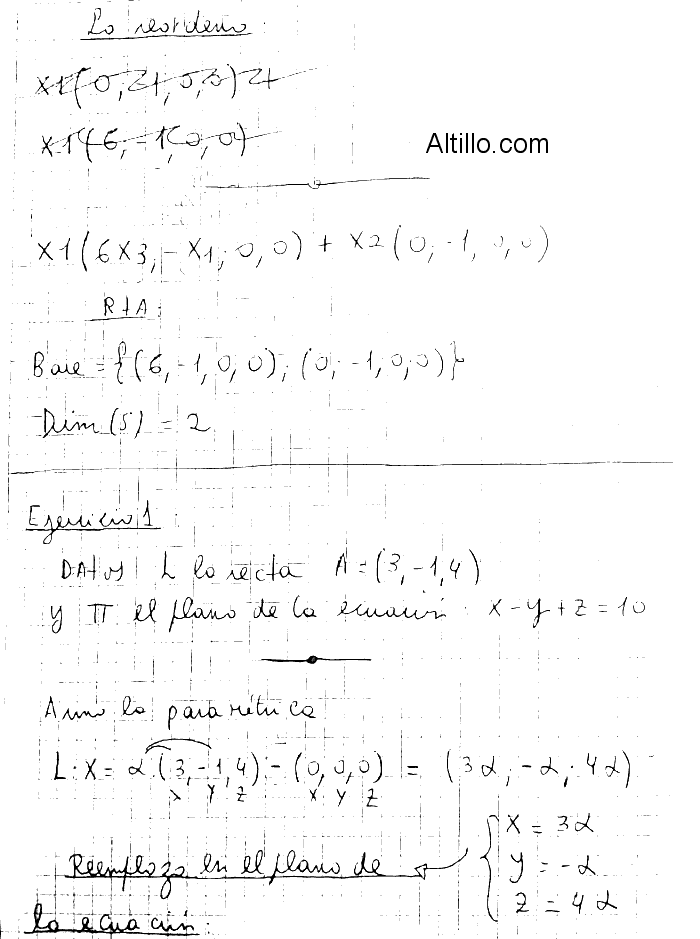 Lo reordeno:
x1(0,24,0,3)24
x1(6,-1,0,0)
Altillo.com
x1(6x3,-x1,0,0) + x2(0,-1,0,0)
RTA:
Base = {(6,-1,0,0); (0,-1,0,0)}
Dim(S) = 2
Ejercicio 1:
DATOS L la recta A=(3,-1,4)
y π el plano de la ecuación: x-y+z=10
Armo la paramétrica
L:X= α(3,-1,4)-(0,0,0) = (3α,-α,4α)
x y z x y z
x = 3α
y = -α
z = 4α
Reemplazo en el plano de
la ecuación: